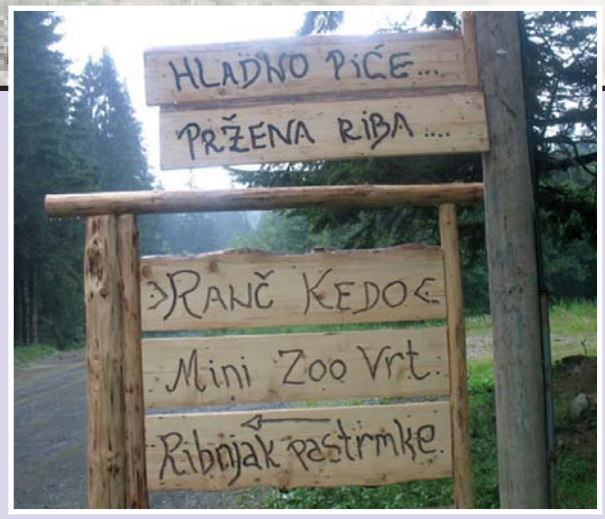 HLADNO PIĆE...
PRŽENA RIBA....
>RANČ KEDO<
Mini Zoo Vrt
←
Ribnjak pastrmke.